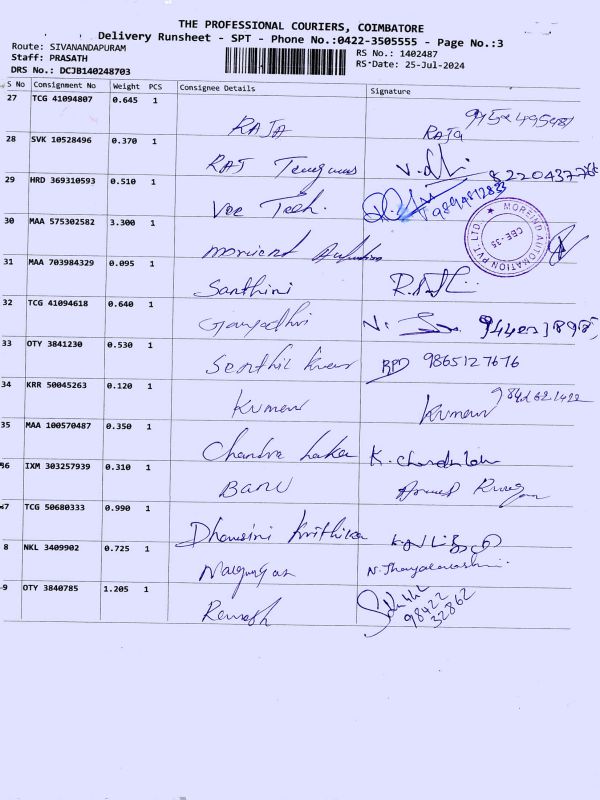 THE PROFESSIONAL COURIERS, COIMBATORE
Delivery Runsheet - SPT - Phone No.:0422-3505555 - Page No.:3
Route: SIVANANDAPURAM
Staff: PRASATH
DRS No.: DCJB140248703
RS No.: 1402487
RS Date: 25-Jul-2024
S No Consignment No Weight PCS Consignee Details Signature
27 TCG 41094807 0.645 1 RAJA RAJA
28 SVK 10528496 0.370 1 RAJ
29 HRD 369310593 0.510 1 Vee Tech. 9894812833
30 MAA 575302582 3.300 1
MOREIND AUTOMATION PVT. LTD. CBE-35
31 MAA 703984329 0.095 1 Santhini
32 TCG 41094618 0.640 1 Gayathri
33 OTY 3841230 0.530 1 Senthil 9865127676
34 KRR 50045263 0.120 1 Kumar Kumar
35 MAA 100570487 0.350 1 Chandra K.
36 IXM 303257939 0.310 1 BANU
37 TCG 50680333 0.990 1 Krithika
8 NKL 3409902 0.725 1
9 OTY 3840785 1.205 1 Ramesh
98422
32862